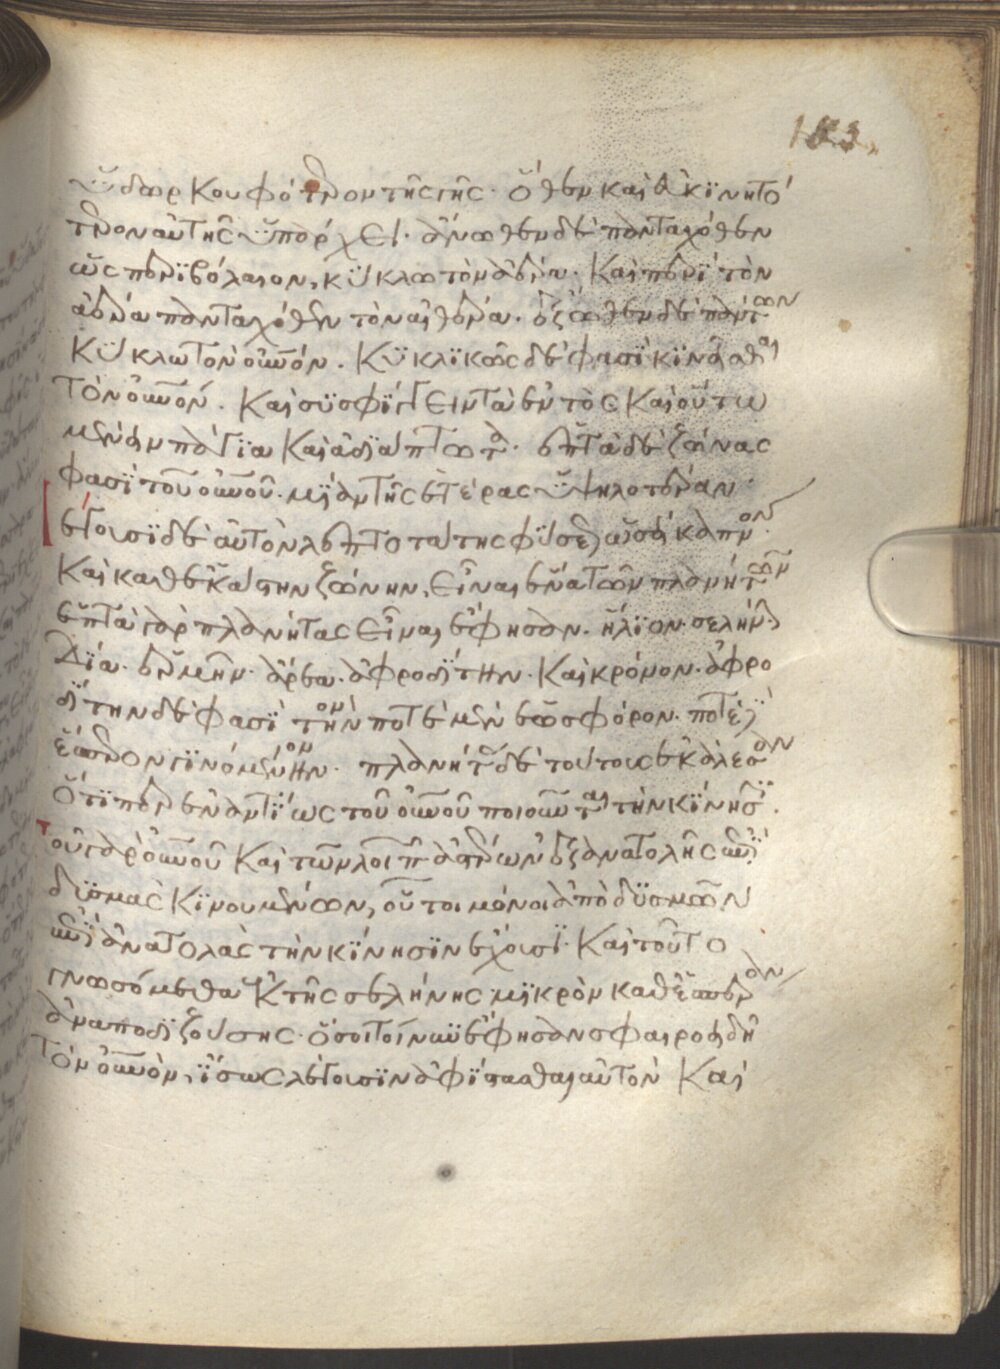 183
ὕδωρ κουφότερον τῆς γῆς. ὅθεν καὶ εὐκινητό
τερον αὐτῆς ὑπάρχει. ἄνωθεν δὲ πανταχόθεν
ὡς περιβόλαιον, κύκλω τὸν ἀέρα. καὶ περὶ τὸν
ἀέρα πανταχόθεν τὸν αἰθέρα. ἔξωθεν δὲ πάντων
κύκλω τὸν οὐνόν. κυκλικῶς δὲ φασὶ κινεῖσθαι
τὸν οὐνόν. καὶ συσφίγγειν τὰ ἐντὸς καὶ οὕτω
μένειν παγία καὶ ἀδιάπτωτα. ἑπτὰ δὲ ζώνας
φασὶ τοῦ οὐνοῦ. μίαν τῆς ἑτέρας ὑψηλοτέραν.
λέγουσι δὲ αὐτὸν λεπτοτάτης φύσεως ὡσεὶ καπνόν.
καὶ καθ' ἑκάστην ζώνην, εἶναι ἕνα τῶν πλανητῶν
ἑπτὰ γὰρ πλανήτας εἶναι ἔφησαν. ἥλιον. σελήνην
Δία. ἑρμῆν. ἄρεα. ἀφροδίτην. καὶ κρόνον. ἀφρο
δίτην δὲ φασὶ τὴν ποτὲ μὲν ἑωσφόρον. ποτὲ δὲ
ἕσπερον γινόμενην. πλανήτας δὲ τούτους ἐκάλεσαν
ὅτι περ ἐναντίως τοῦ οὐνοῦ ποιοῦνται τὴν κίνησιν.
τοῦ γὰρ οὐνοῦ καὶ τῶν λοιπῶν ἀστέρων ἐξ ἀνατολῆς ἐπὶ
δυσμὰς κινουμένων, οὗτοι μόνοι ἀπὸ δυσμῶν
ἐπὶ ἀνατολὰς τὴν κίνησιν ἔχουσι. καὶ τοῦτο
γνωσόμεθα ἐκ τῆς σελήνης μικρὸν καθ' ἑσπέραν
ἀναποδιζούσης. ὅσοι τοίνυν ἔφησαν σφαιροειδῆ
τὸν οὐνὸν, ἴσως λέγουσιν ἀφίστασθαι αὐτὸν καὶ